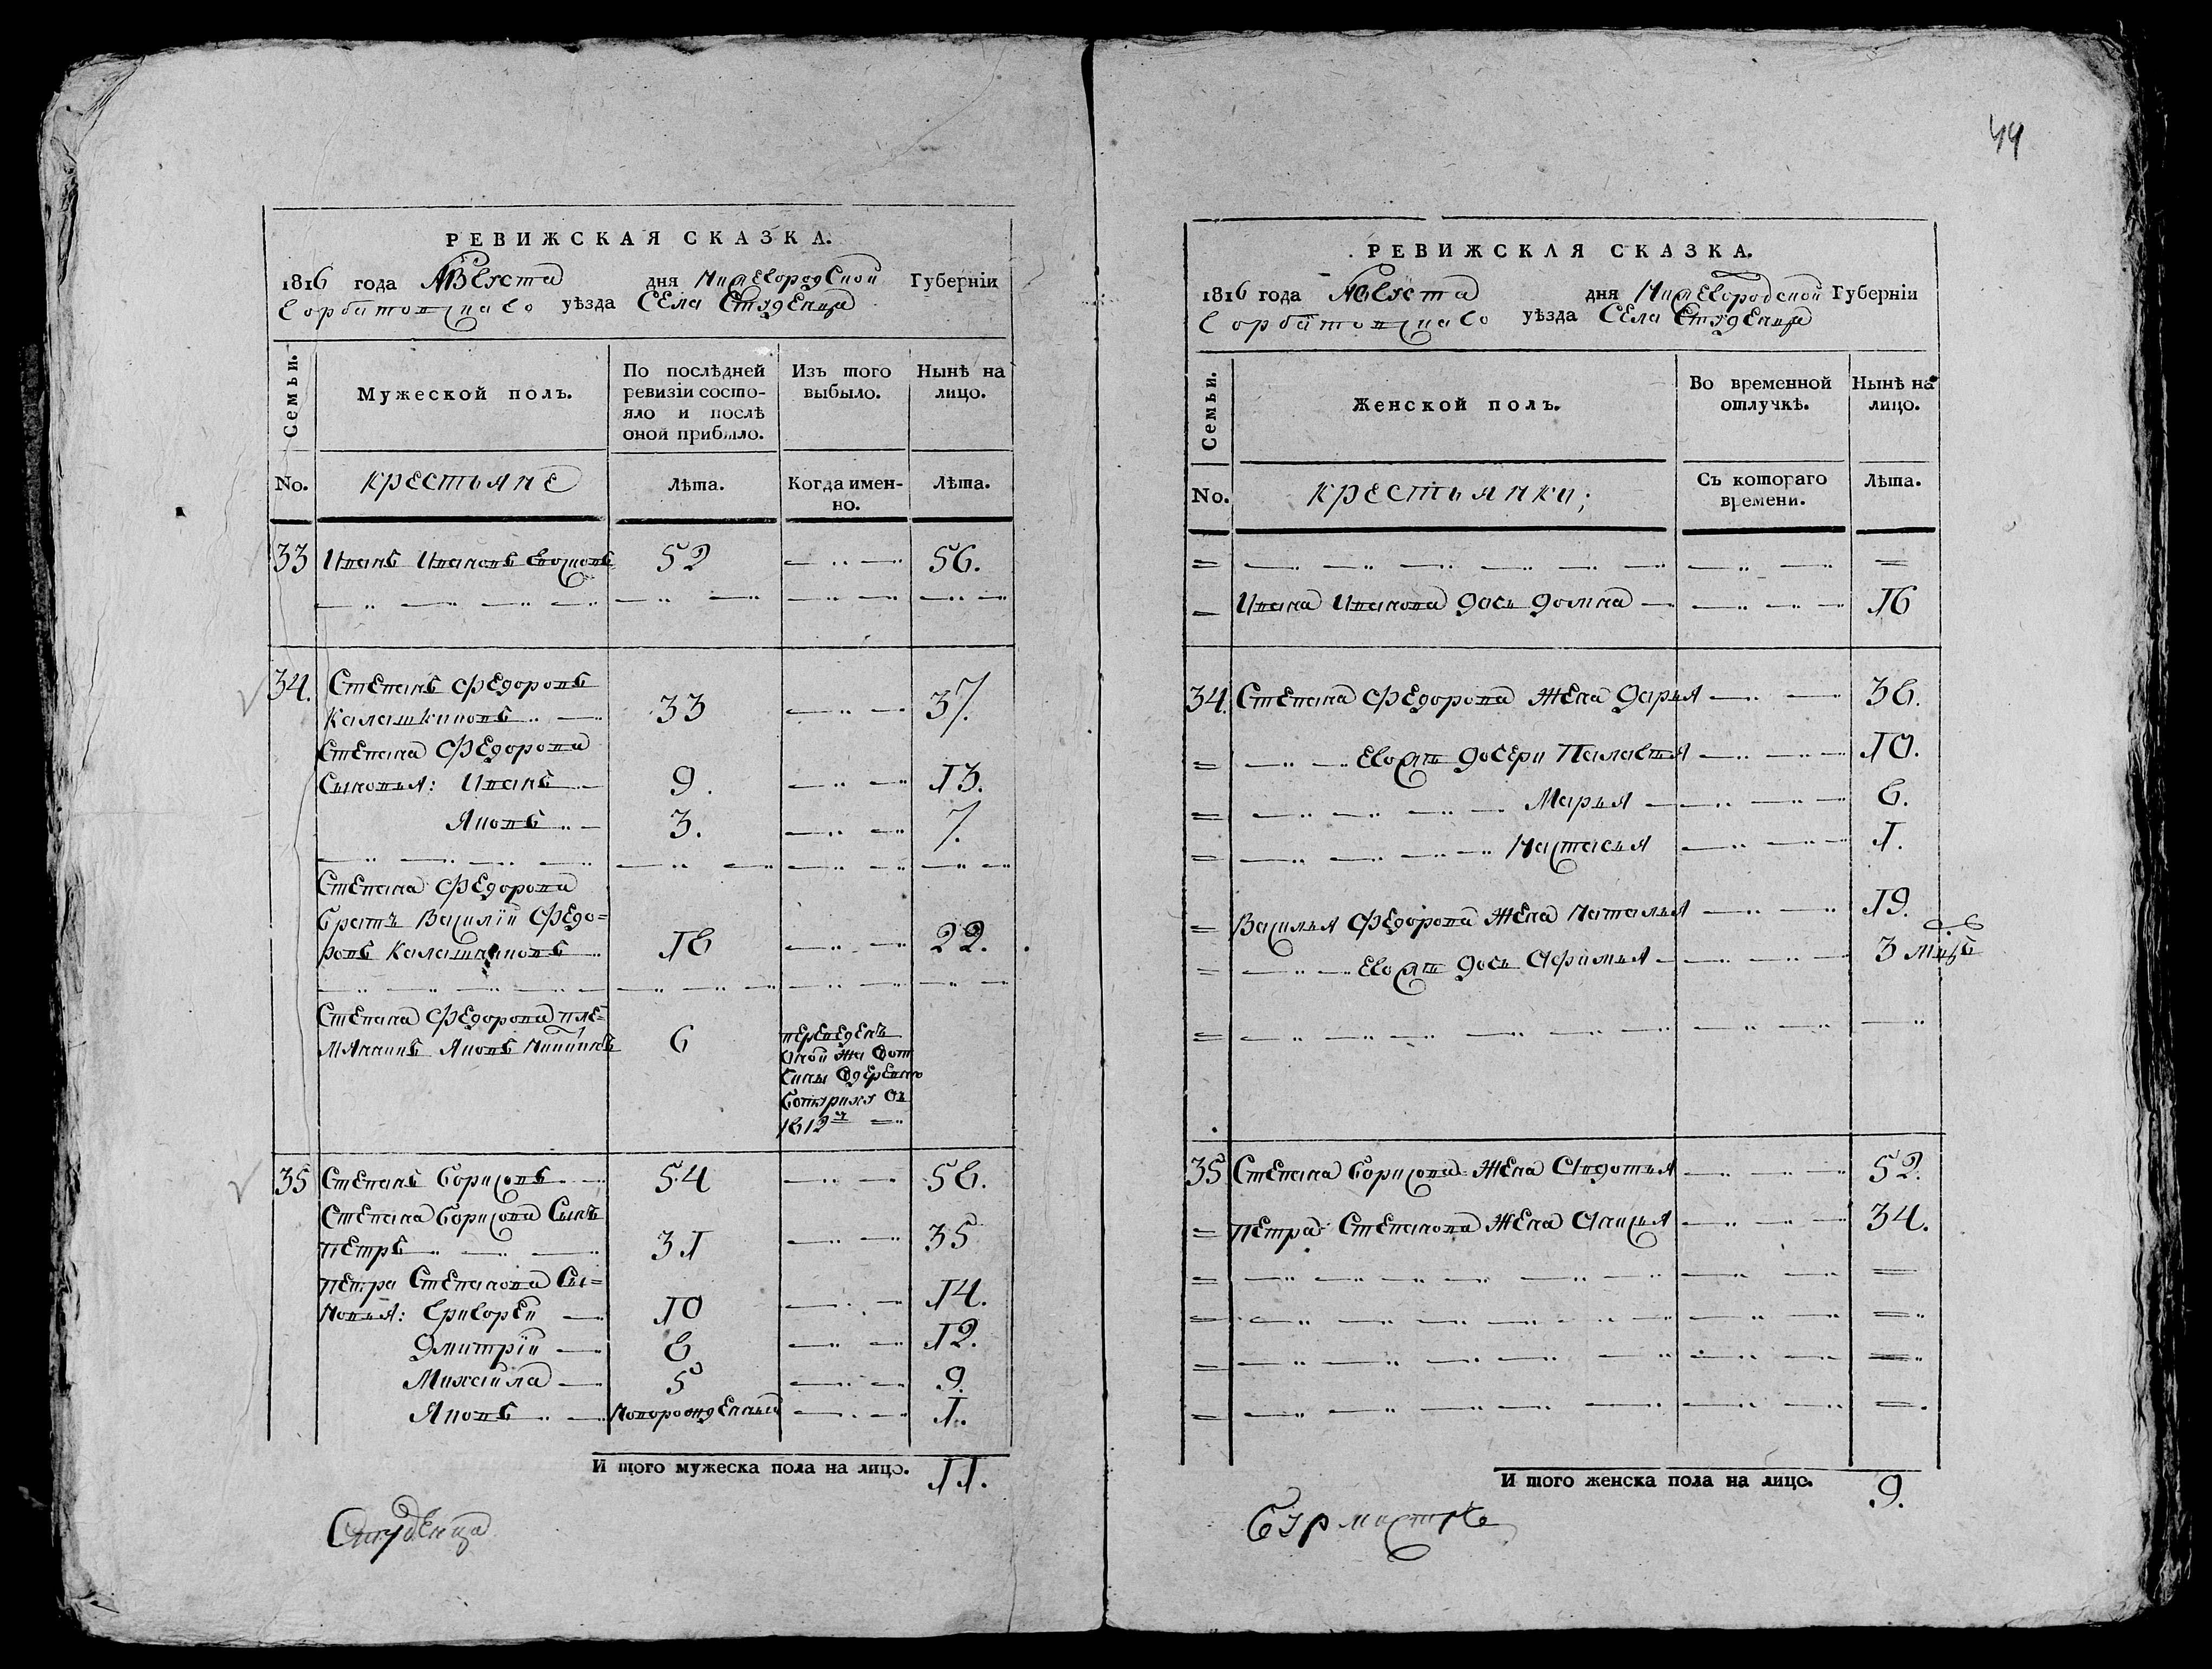 44
РЕВИЖСКАЯ СКАЗКА.
1816 года Августа дня Нижегородской Губерніи
Горбатовскаго уѣзда Села Студенца
Семьи.
Мужеской полъ.
По послѣдней
ревизіи состо-
яло и послѣ
оной прибыло.
Изъ того
выбыло.
Нынѣ на
лицо.
No.
крестьяне
лѣта.
Когда имен-
но.
лѣта.
33 Иванъ Ивановъ 52 56.
34. Степанъ Федоровъ
Калашниковъ 33 37.
Степана Федорова
Сыновья: Иванъ 9. 13.
Яковъ 3. 7.
Степана Федорова
братъ Василіи Федо=
ровъ Калашниковъ 18 22.
Степана Федорова пле=
мянникъ Яковъ Никитинъ 6
переведенъ
оной же вот
чины в деревню
1812г
35 Степанъ Борисовъ 54 58.
Степана Борисова Сынъ
Петръ 31 35
Петра Степанова Сы=
новья: Григорей 10 14.
Дмитріи 8 12.
Михайла 5 9.
Яковъ Новорожденный 1.
И того мужеска пола на лицо. 11.
Студенца
РЕВИЖСКАЯ СКАЗКА.
1816 года Августа дня Нижегородской Губерніи
Горбатовскаго уѣзда Села Студенца
Семьи.
Женской полъ.
Во временной
отлучкѣ.
Нынѣ на
лицо.
No.
крестьянки;
Съ котораго
времени.
лѣта.
Ивана Иванова дочь Домна 16
34. Степана Федорова жена Дарья 38.
Евож дочери Палагея 10.
Марья 8.
Настасья 1.
Василья Федорова жена Наталья 19.
Евож дочь Афимья 3 мцъ
35 Степана Борисова жена Авдотья 52.
Петра Степанова жена Анисья 34.
И того женска пола на лицо. 9.
Бурмистръ